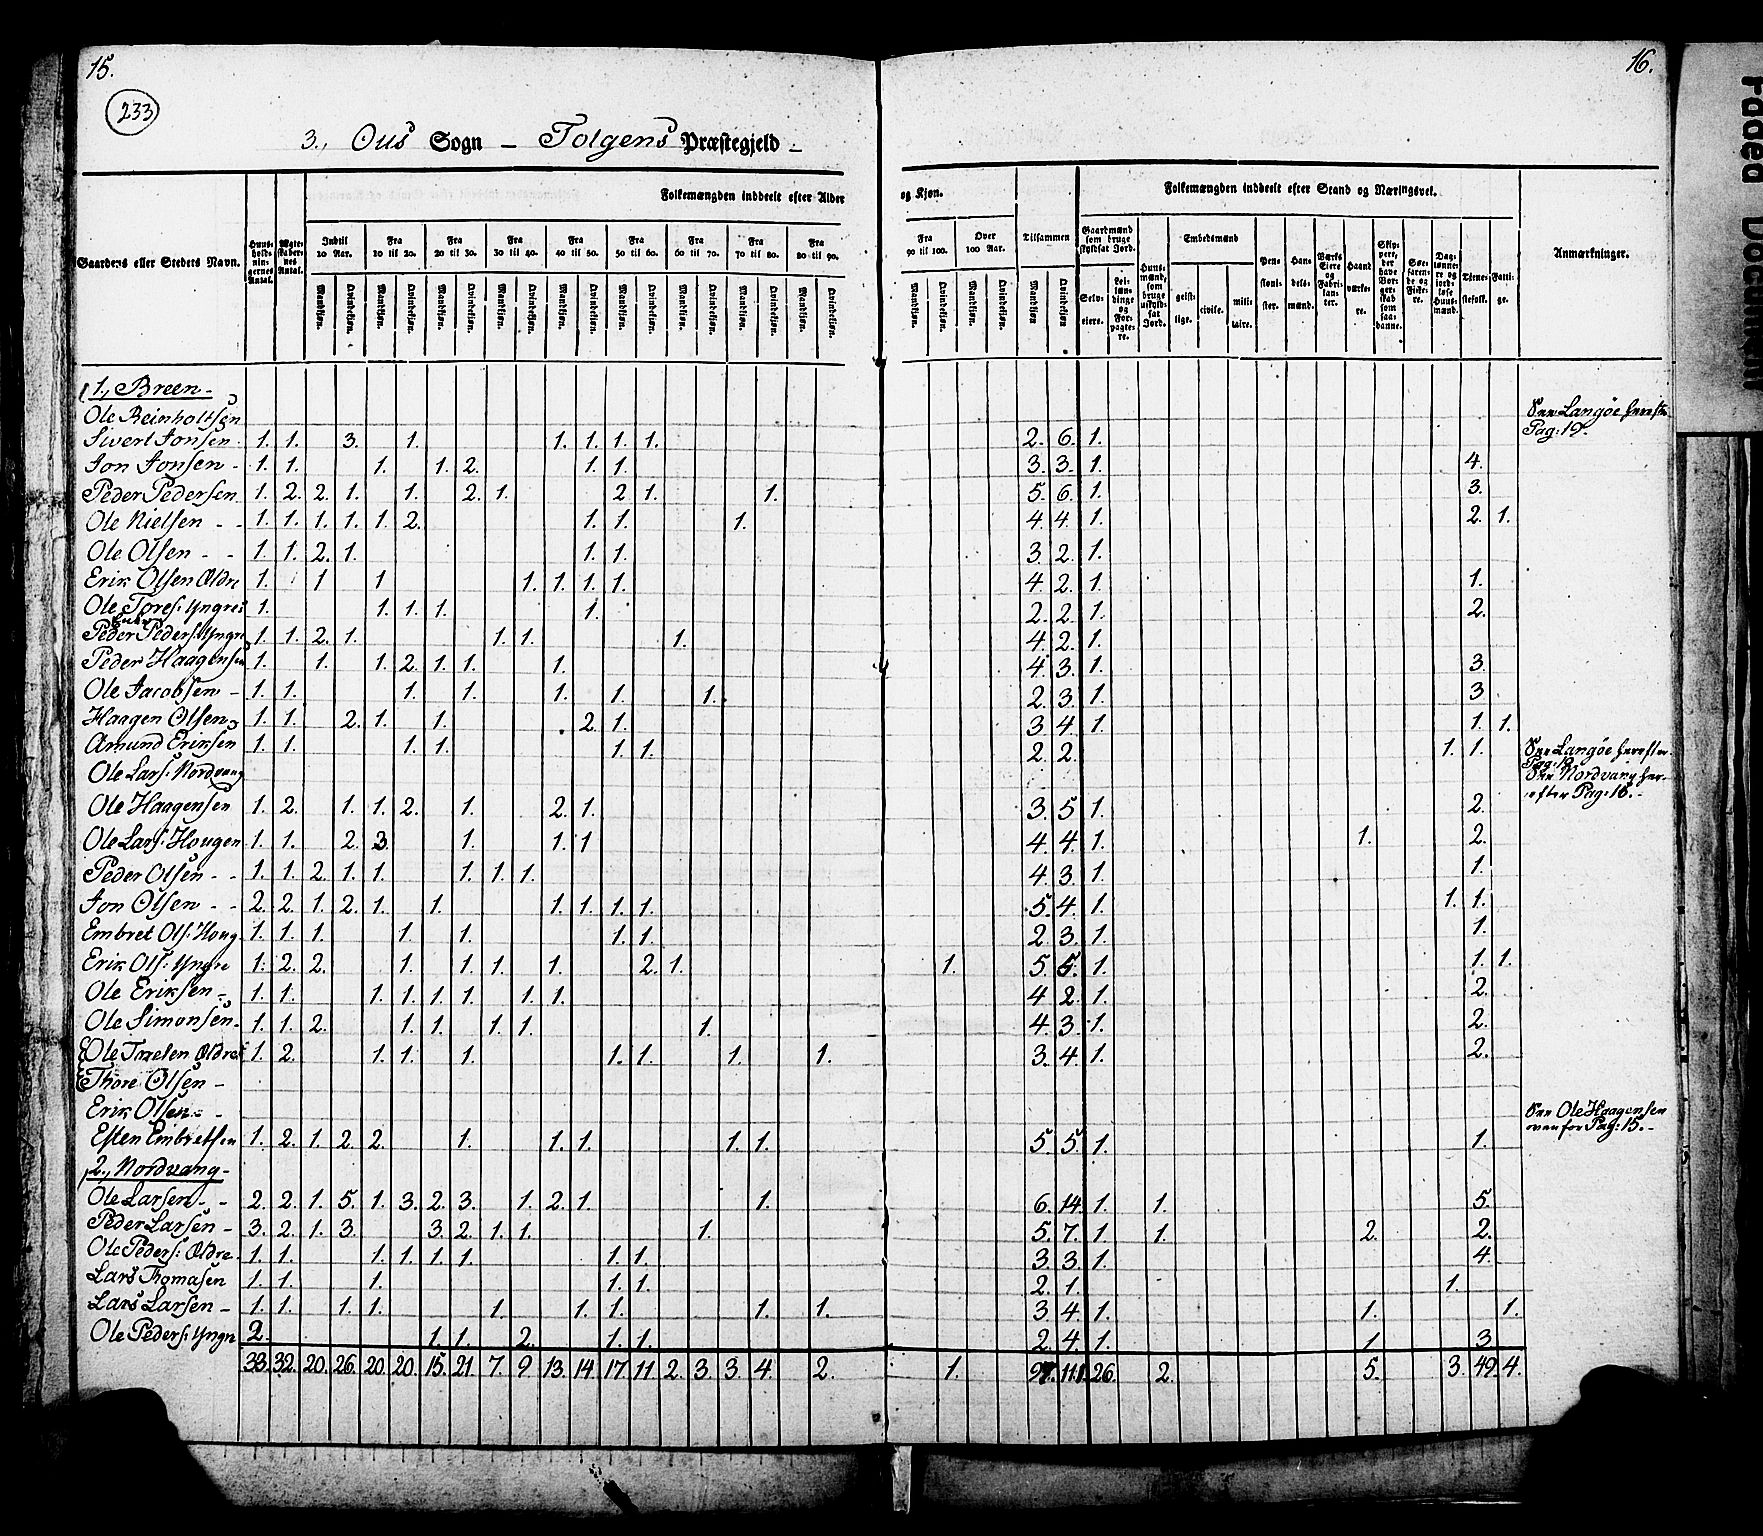 15.
16.
233
3., Ous Sogn – Tolgens Præstegjeld –
Gaardens eller Stedets Navn.
Folkemængden inddeelt efter Alder
og Kjøn.
Folkemængden inddeelt efter Stand og Næringsvei.
Anmærkninger.
Indtil 10 Aar.
Fra 10 til 20.
Fra 20 til 30.
Fra 30 til 40.
Fra 40 til 50.
Fra 50 til 60.
Fra 60 til 70.
Fra 70 til 80.
Fra 80 til 90.
Fra 90 til 100.
Over 100 Aar.
Tilsammen
Mandkjøn. Qvindekjøn.
Gaardmænd som bruge skyldsat Jord.
Embedsmænd
1, Breen –
Ole Reinholtsen See Langøe herefter
Pag: 19.
Sivert Jonsen 1. 1. 3. 1. 1. 1. 1. 1. 2. 6. 1.
Jon Jonsen – 1. 1. 1. 1. 2. 1. 1. 3. 3. 1. 4.
Peder Pedersen 1. 2. 2. 1. 1. 2. 1. 2 1. 1. 5. 6. 1. 3.
Ole Nielsen – – 1. 1. 1. 1. 1. 2. 1. 1. 1. 4. 4. 1. 2. 1.
Ole Olsen – – 1. 1. 2. 1. 1. 1. 3. 2. 1.
Erik Olsen Ældre 1. 1 1. 1. 1. 1. 1. 4. 2. 1. 1.
Ole Tores: Yngres 1. 1. 1. 1. 1. 2. 2. 1. 2.
Peder Peders: Yngre 1. 1. 2. 1. 1. 1. 1. 4. 2. 1.
Peder Haagensen 1. 1. 1. 2. 1. 1. 1. 4. 3. 1. 3.
Ole Jacobsen – 1. 1. 1. 1. 1. 1. 1. 2. 3. 1. 3
Haagen Olsen 1. 1. 2. 1. 1. 2. 1. 3 4. 1. 1. 1.
Amund Eriksen 1. 1. 1. 1. 1. 1. 2. 2. 1. 1. See Langøe herefter
Ole Lars: Nordvang See Nordvang her-
efter Pag: 16. –
Ole Haagensen 1. 2. 1. 1. 2. 1. 2. 1. 3. 5. 1. 2.
Ole Lars: Hougen 1. 1. 2. 3. 1. 1. 1 4. 4. 1. 1. 2.
Peder Olsen – – 1. 1. 2. 1. 1. 1. 1. 1. 4. 3. 1. 1.
Jon Olsen – – 2. 2. 1. 2. 1. 1. 1. 1. 1. 1. 5. 4. 1. 1. 1.
Embret Ols: Houg 1. 1. 1. 1. 1. 1. 1. 2. 3. 1. 1.
Erik Ols: Yngre 1. 2. 2. 1. 1. 1. 1. 2. 1. 1. 5. 5. 1. 1. 1.
Ole Eriksen – 1. 1. 1. 1. 1. 1. 1. 1. 4. 2. 1. 2.
Ole Simonsen – 1. 1. 2. 1. 1. 1. 1. 1. 4. 3. 1. 2.
Ole Ældre 1. 2. 1. 1. 1. 1. 1. 1. 1. 3. 4. 1. 2.
Thore Olsen –
Erik Olsen – – See Ole Haagensen
ovenfor Pag: 15. –
Esten Embretsen 1. 2. 1. 2. 2. 1. 1. 1. 1. 1. 5. 5. 1. 1.
2, Nordvang –
Ole Larsen – – 2. 2. 1. 5. 1. 3. 2. 3. 1. 2. 1. 1. 6. 14. 1. 1. 5.
Peder Larsen – 3. 2. 1. 3. 3. 2. 1. 1. 1. 5. 7. 1. 1. 2. 2.
Ole Peders: Ældre 1. 1. 1. 1. 1. 1. 1. 1. 3. 3. 1. 4.
Lars Thomasen 1. 1. 1. 1. 1. 2. 1. 1.
Lars Larsen – 1. 1. 1. 1. 1. 1. 1. 1. 1. 3 4. 1. 1. 1.
Ole Peders: Yngre 2. 1. 1. 2. 1. 1. 2. 4. 1. 1. 3.
33. 32. 20. 26. 20. 20. 15. 21. 7. 9. 13. 14. 17. 11. 2. 3. 3. 4. 2. 1. 97. 111. 26. 2. 5. 3. 49. 4.